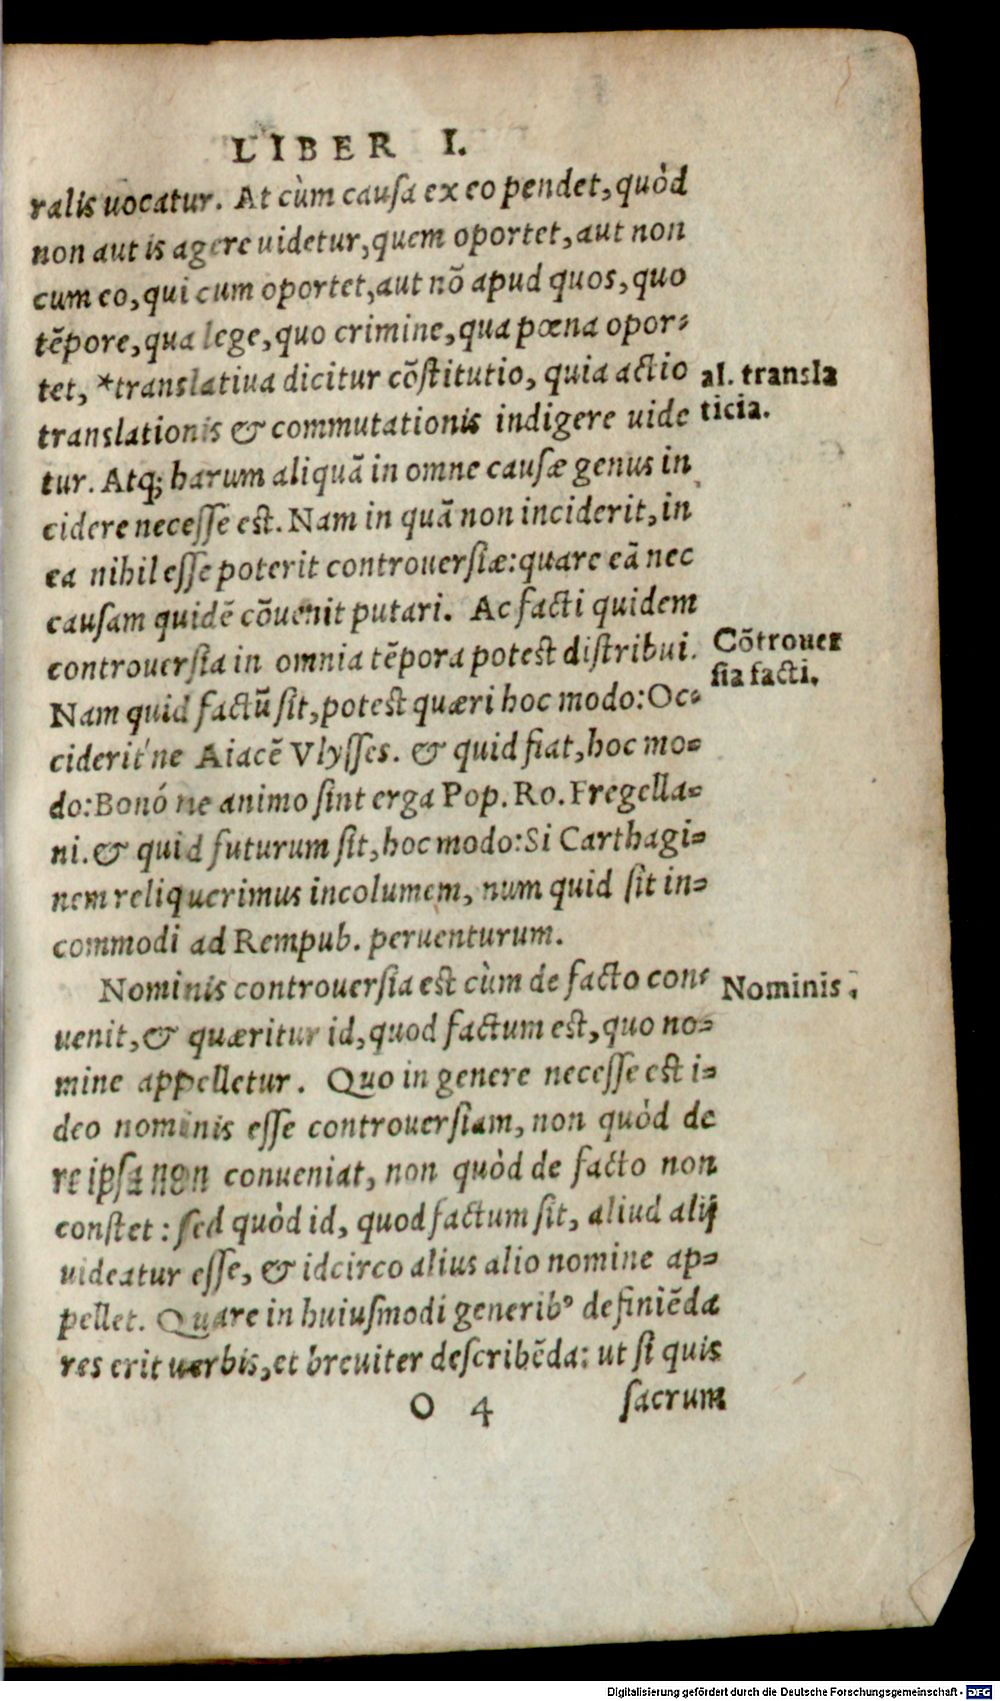 LIBER I.
ralis uocatur. At cùm causa ex eo pendet, quòd
non aut is agere uidetur, quem oportet, aut non
cum eo, qui cum oportet, aut nõ apud quos, quo
tẽpore, qua lege, quo crimine, qua pœna opor-
tet, *translatiua dicitur cõstitutio, quia actio
al. transla
ticia.
translationis & commutationis indigere uide
tur. Atq; harum aliquã in omne causæ genus in
cidere necesse est. Nam in quã non inciderit, in
ea nihil esse poterit controuersiæ: quare eã nec
causam quidẽ cõuenit putari. Ac facti quidem
controuersia in omnia tẽpora potest distribui.
Cõtrouer
sia facti.
Nam quid factũ sit, potest quæri hoc modo: Oc-
ciderit'ne Aiacẽ Vlysses. & quid fiat, hoc mo-
do: Bonó ne animo sint erga Pop. Ro. Fregella-
ni. & quid futurum sit, hoc modo: Si Carthagi-
nem reliquerimus incolumem, num quid sit in-
commodi ad Rempub. peruenturum.
Nominis controuersia est cùm de facto con-
Nominis.
uenit, & quæritur id, quod factum est, quo no-
mine appelletur. Quo in genere necesse est i-
deo nominis esse controuersiam, non quòd de
re ipsa non conueniat, non quòd de facto non
constet: sed quòd id, quod factum sit, aliud alij
uideatur esse, & idcirco alius alio nomine ap-
pellet. Quare in huiusmodi generibꝰ definiẽda
res erit uerbis, et breuiter describẽda: ut si quis
O 4
sacrum
Digitalisierung gefördert durch die Deutsche Forschungsgemeinschaft - DFG